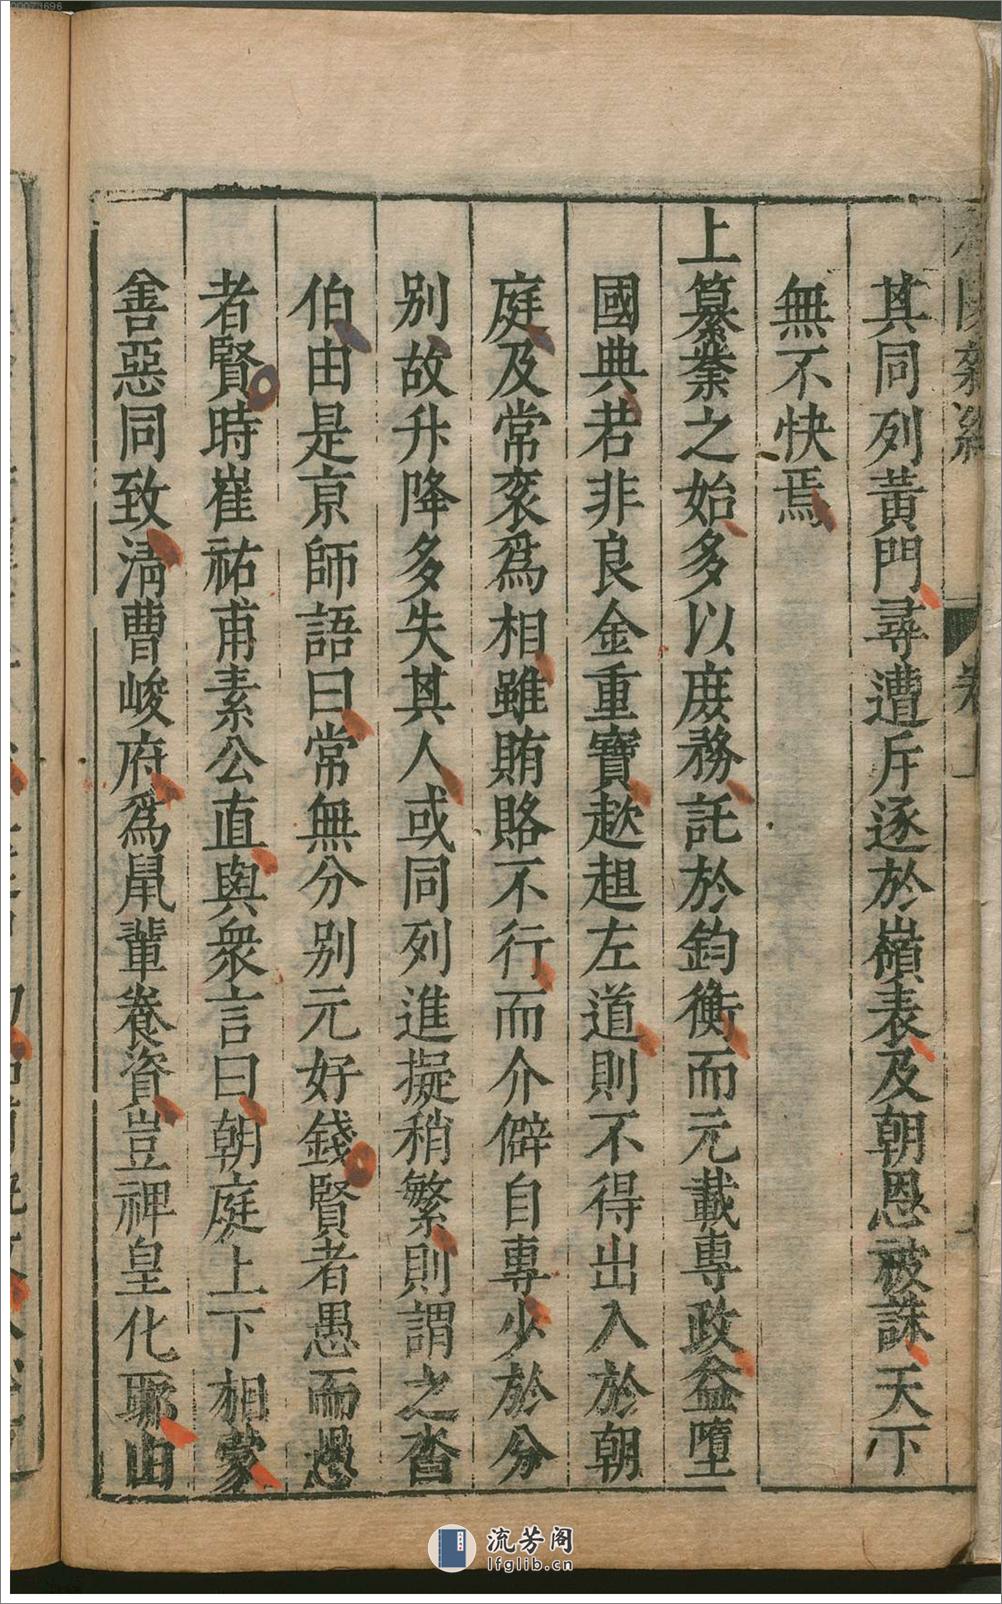 其同列黃門尋遭斥逐於嶺表及朝恩被誅天下
無不快焉
上纂業之始多以庶務託於鈞衡而元載專政益墮
國典若非良金重寶趑趄左道則不得出入於朝
庭及常衮爲相雖賄賂不行而介僻自專少於分
别故升降多失其人或同列進擬稍繁則謂之沓
伯由是京師語曰常無分别元好錢賢者愚而愚
者賢時崔祐甫素公直與衆言曰朝庭上下相蒙
善惡同致清曹峻府爲鼠輩養資豈裨皇化耶由
卷二
00073696
流芳阁
lfglib.cn